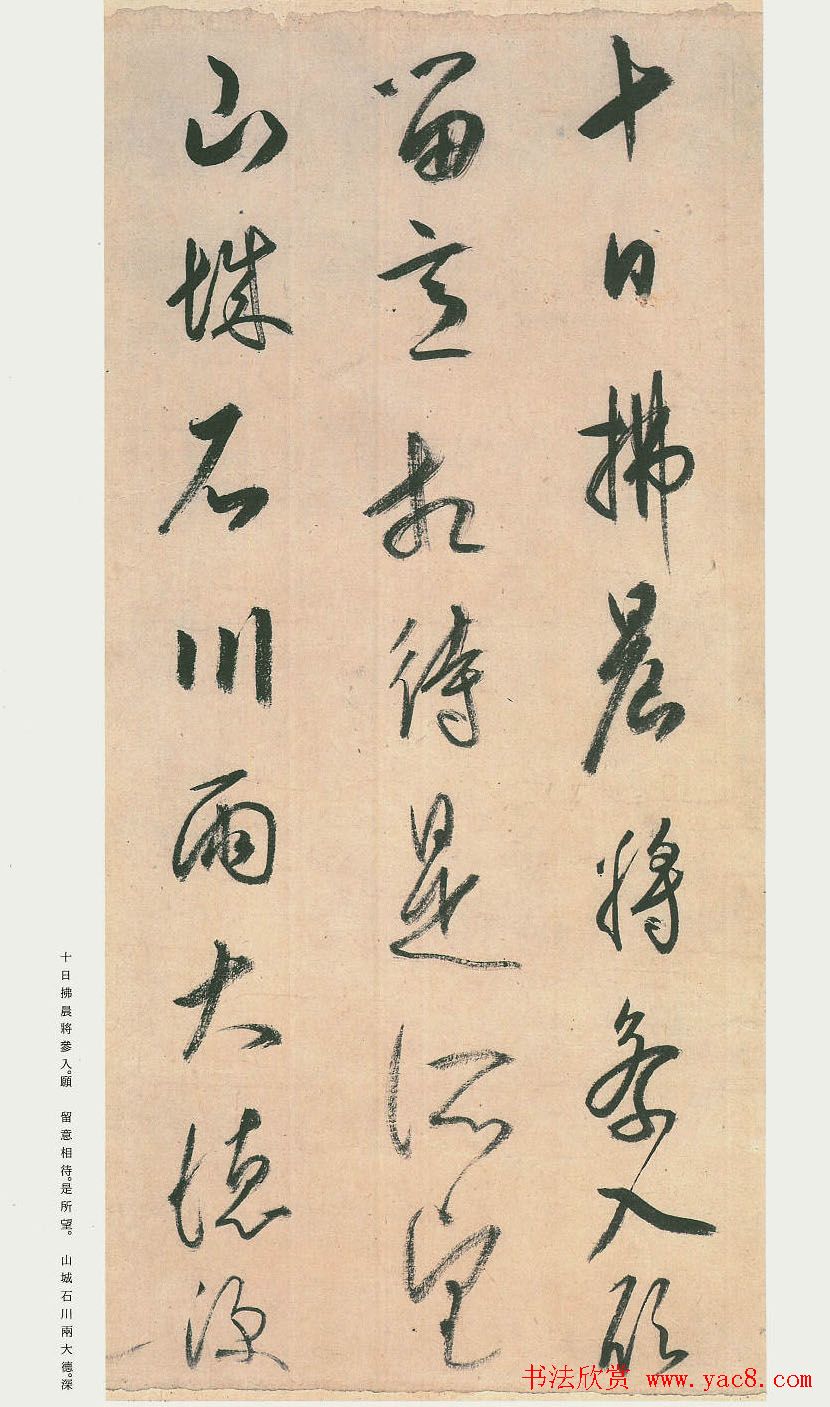 十日拂晨將參入願
留意相待是所望
山城石川兩大德深
十日拂晨將參入。願 留意相待。是所望。 山城石川兩大德。深
书法欣赏 www.yac8.com